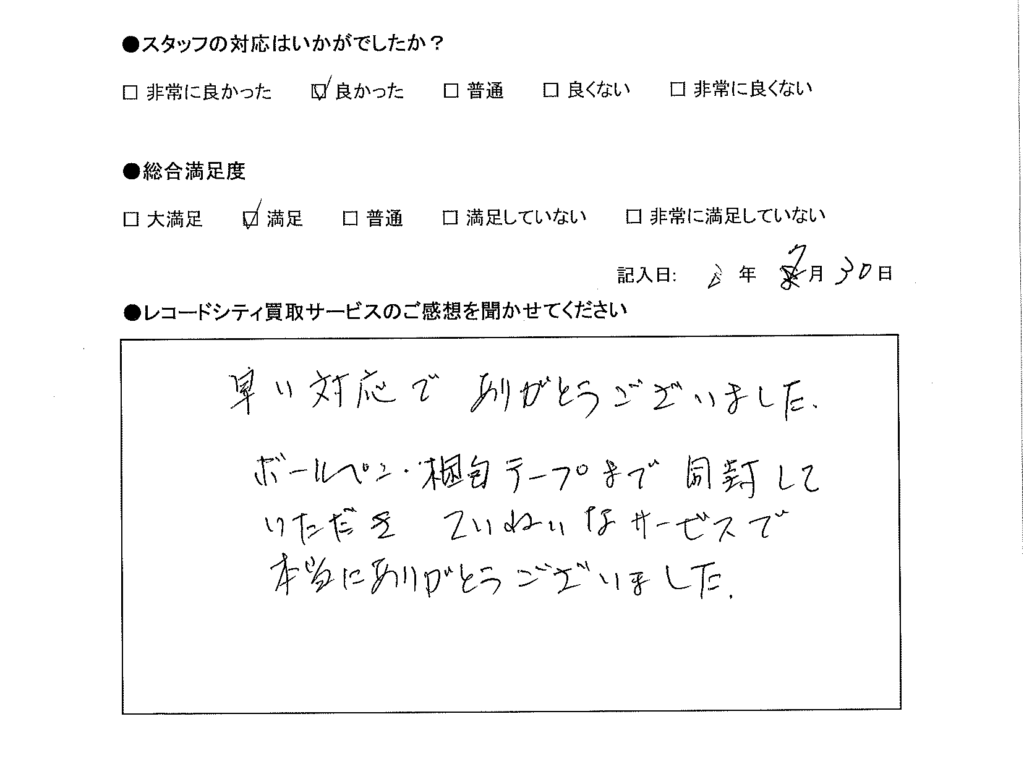 ●スタッフの対応はいかがでしたか？
□ 非常に良かった ☑ 良かった □ 普通 □ 良くない □ 非常に良くない
●総合満足度
□ 大満足 ☑ 満足 □ 普通 □ 満足していない □ 非常に満足していない
記入日: 年 7月 30日
●レコードシティ買取サービスのご感想を聞かせてください
早い対応で ありがとうございました.
ボールペン・梱包テープまで 同封して
いただき ていねいなサービスで
本当にありがとうございました.